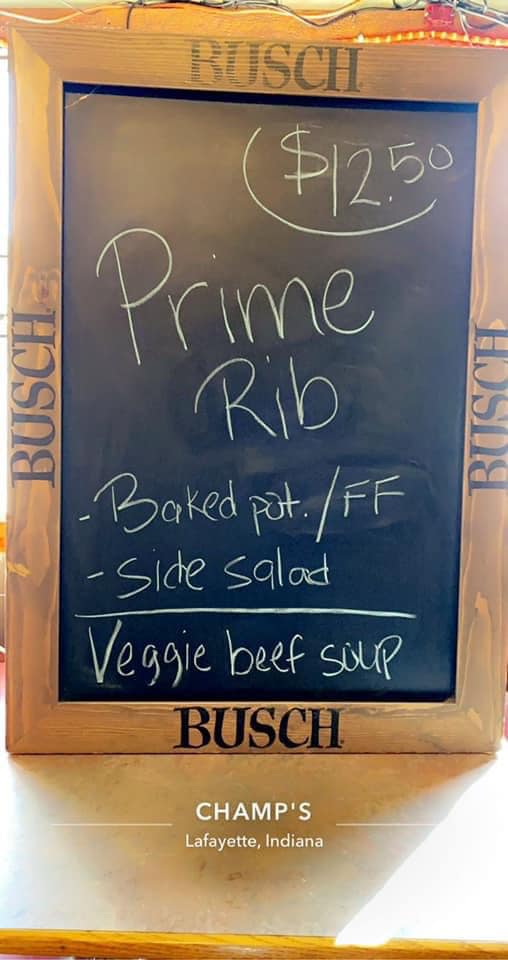 BUSCH
$12.50
Prime
Rib
BUSCH
BUSCH
- Baked pot. / FF
- Side salad
Veggie beef soup
BUSCH
CHAMP'S
Lafayette, Indiana